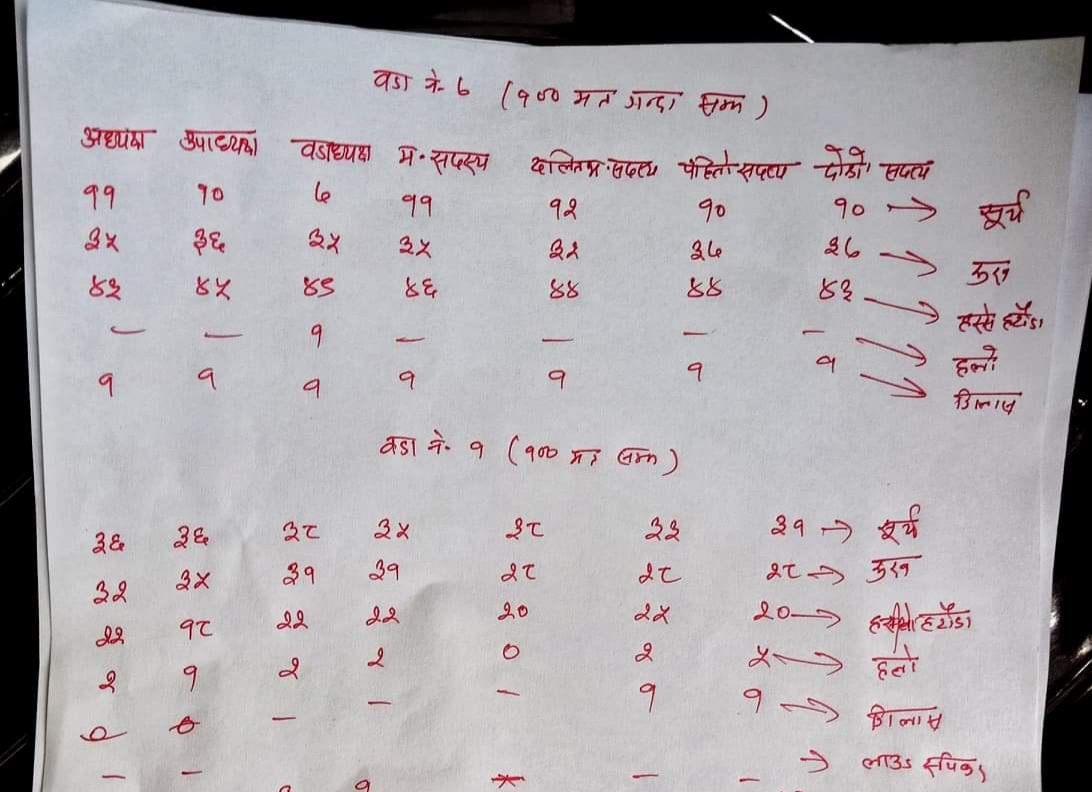 वडा नं- ६ (१०० मत गन्दा सम्म)
अध्यक्ष उपाध्यक्ष वडाध्यक्ष म.सदस्य दलित म.सदस्य पहिलो सदस्य दोस्रो सदस्य
११ १० ७ ११ १२ १० १० → सूर्य
३५ ३६ ३५ ३५ ३२ ३७ ३७ → रुख
४३ ४५ ४९ ४६ ४४ ४४ ४३ → हसिया हथौडा
— — १ — — — — → हलो
१ १ १ १ १ १ १ → गिलास
वडा नं- १ (१०० मत सम्म)
३६ ३६ ३८ ३५ ३८ ३३ ३१ → सूर्य
३२ ३५ ३१ ३१ २८ २८ २८ → रुख
२२ १८ २२ २२ २० २५ २० → हसिया हथौडा
२ १ २ २ ० २ ५ → हलो
० ० — — — १ १ → गिलास
— — १ — — → लाउड स्पिकर